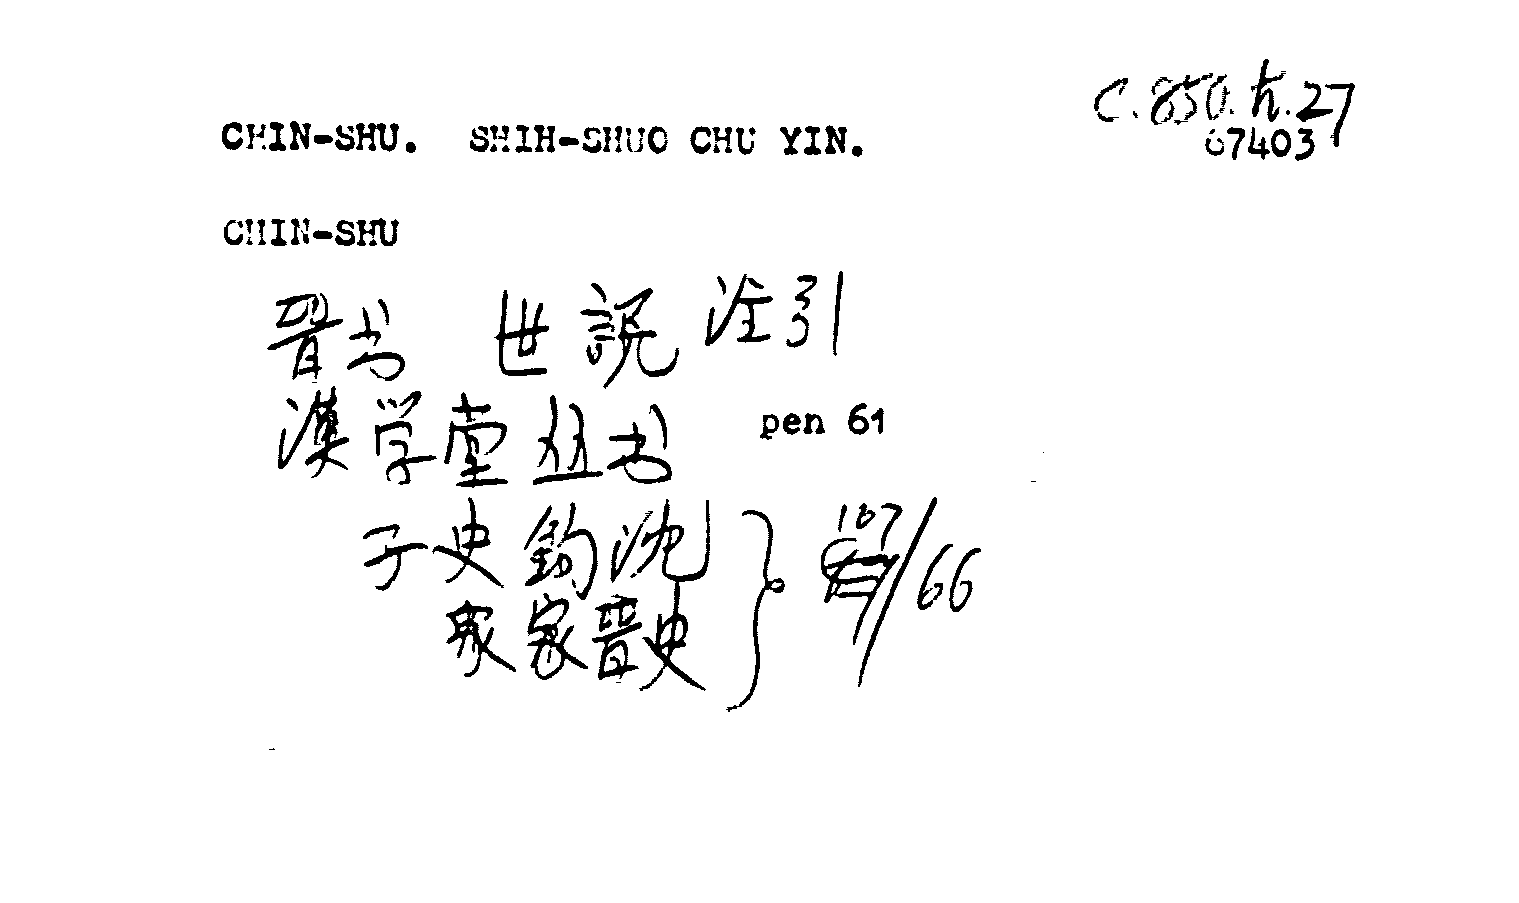 C.850.h.27
67403
CHIN-SHU. SHIH-SHUO CHU YIN.
CHIN-SHU
晋书 世説 注引
漢学堂丛书 pen 61
子史鈎沈
衆家晋史
167/66